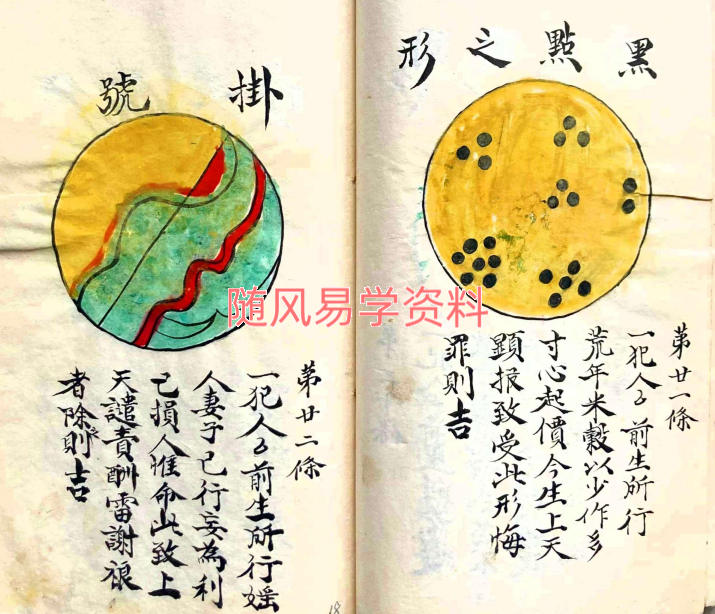 黑點之形
第廿一條
一犯人之前生所行
荒年米穀以少作多
寸心起價今生上天
顕报致受此形悔
罪則吉
掛號
第廿二條
一犯人之前生所行婬
人妻子已行妄為利
己損人惟命此致上
天譴責酬雷謝禳
者除則吉
18
随风易学资料